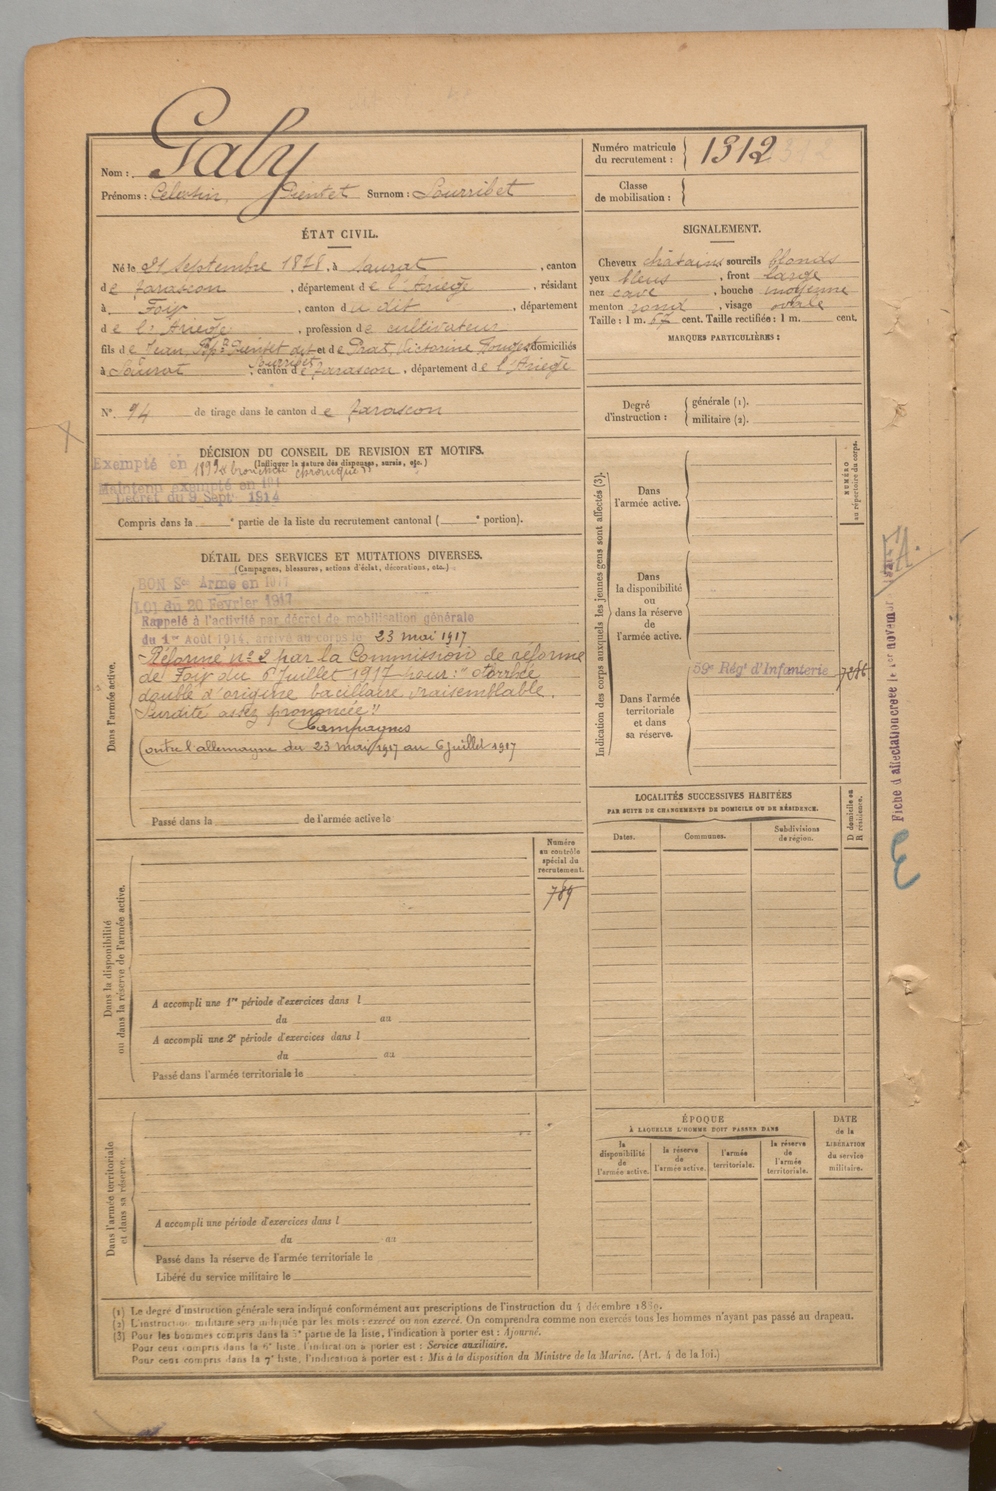 Nom : Galy
Numéro matricule du recrutement : 1312
Prénoms : Celestin, Pientet Surnom : Sourribet
Classe de mobilisation :
ÉTAT CIVIL.
Né le 21 Septembre 1878, à Saurat, canton
de Tarascon, département de l'Ariège, résidant
à Foix, canton du dit, département
de l'Ariège, profession de cultivateur
fils de Jean, Bpte Pientet dit Sourribet et de Prat, Victorine Rouget domiciliés
à Saurat, canton de Tarascon, département de l'Ariège
N° 94 de tirage dans le canton de Tarascon
SIGNALEMENT.
Cheveux châtains sourcils blonds
yeux bleus, front large
nez cave, bouche moyenne
menton rond, visage ovale
Taille : 1 m. 67 cent. Taille rectifiée : 1 m. cent.
MARQUES PARTICULIÈRES :
Degré d'instruction : générale (1).
militaire (2).
DÉCISION DU CONSEIL DE REVISION ET MOTIFS.
(Indiquer la nature des dispenses, sursis, etc.)
Exempté en 1899 "bronchite chronique"
Maintenu exempté en 191
Décret du 9 Sept 1914
Compris dans la e partie de la liste du recrutement cantonal ( e portion).
DÉTAIL DES SERVICES ET MUTATIONS DIVERSES.
(Campagnes, blessures, actions d'éclat, décorations, etc.)
Dans l'armée active.
BON Sce Armé en 1917
LOI du 20 Février 1917
Rappelé à l'activité par décret de mobilisation générale
du 1er Août 1914, arrivé au corps le 23 mai 1917
Réformé n° 2 par la Commission de réforme
de Foix du 6 Juillet 1917 pour : "otorrhée
double d'origine bacillaire vraisemblable.
Surdité assez prononcée"
Campagnes
Contre l'allemagne du 23 mai 1917 au 6 juillet 1917
Passé dans la de l'armée active le
Indication des corps auxquels les jeunes gens sont affectés (3).
NUMÉRO au répertoire du corps.
Dans l'armée active.
Dans la disponibilité ou dans la réserve de l'armée active.
Dans l'armée territoriale et dans sa réserve.
59e Régt d'Infanterie
Fiche d'affectation créée le 1er novembre
LOCALITÉS SUCCESSIVES HABITÉES
PAR SUITE DE CHANGEMENTS DE DOMICILE OU DE RÉSIDENCE.
Dates. Communes. Subdivisions de région. D domicile ou R résidence.
Numéro au contrôle spécial du recrutement.
789
Dans la disponibilité ou dans la réserve de l'armée active.
A accompli une 1re période d'exercices dans l
du au
A accompli une 2e période d'exercices dans l
du au
Passé dans l'armée territoriale le
Dans l'armée territoriale et dans sa réserve.
A accompli une période d'exercices dans l
du au
Passé dans la réserve de l'armée territoriale le
Libéré du service militaire le
ÉPOQUE
À LAQUELLE L'HOMME DOIT PASSER DANS
la disponibilité de l'armée active.
la réserve de l'armée active.
l'armée territoriale.
la réserve de l'armée territoriale.
DATE de la LIBÉRATION du service militaire.
(1) Le degré d'instruction générale sera indiqué conformément aux prescriptions de l'instruction du 4 décembre 1889.
(2) L'instruction militaire sera indiquée par les mots : exercé ou non exercé. On comprendra comme non exercés tous les hommes n'ayant pas passé au drapeau.
(3) Pour les hommes compris dans la 5e partie de la liste, l'indication à porter est : Ajourné.
Pour ceux compris dans la 6e liste, l'indication à porter est : Service auxiliaire.
Pour ceux compris dans la 7e liste, l'indication à porter est : Mis à la disposition du Ministre de la Marine. (Art. 4 de la loi.)